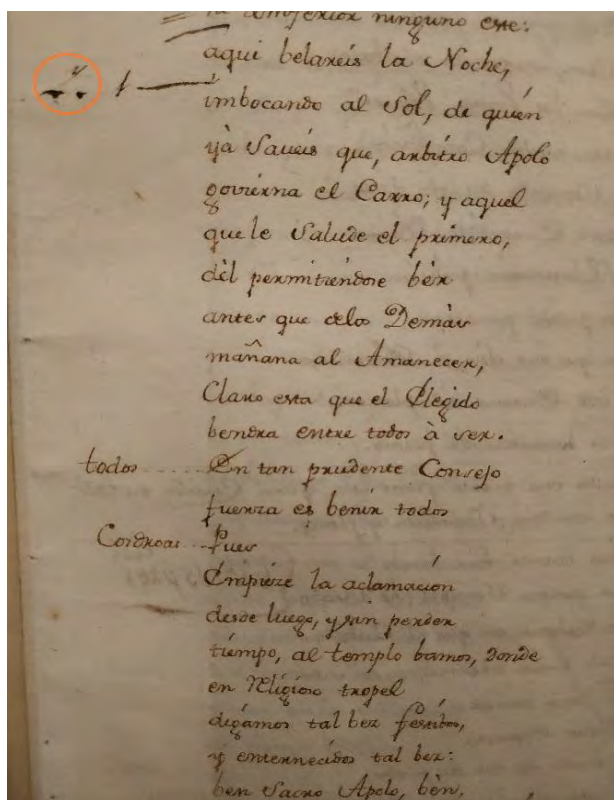 ninguno este:
aqui belareis la Noche,
imbocando al Sol, de quién
yà Saueis que, arbitro Apolo
govierna el Carro; y aquel
que le Salude el primero,
dèl permitiendose bèr
antes que delos Demàs
mañana al Amanecer,
Claro esta que el Elegido
bendra entre todos à ser.
todos .... En tan prudente Consejo
fuerza es benir todos
Pues
Empieze la aclamación
desde luego, y sin perder
tiempo, al templo bamos, donde
en Religioso tropel
digamos tal bez festibos,
y enternecidos tal bez:
ben Sacro Apolo, bèn,